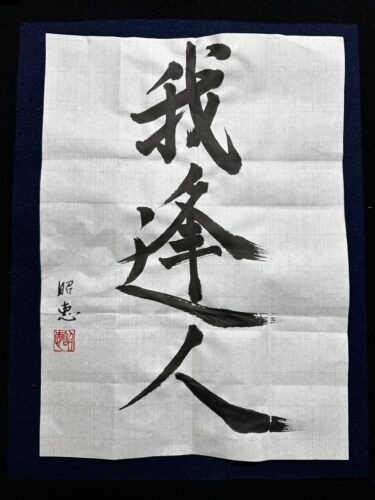 我逢人
昭惠